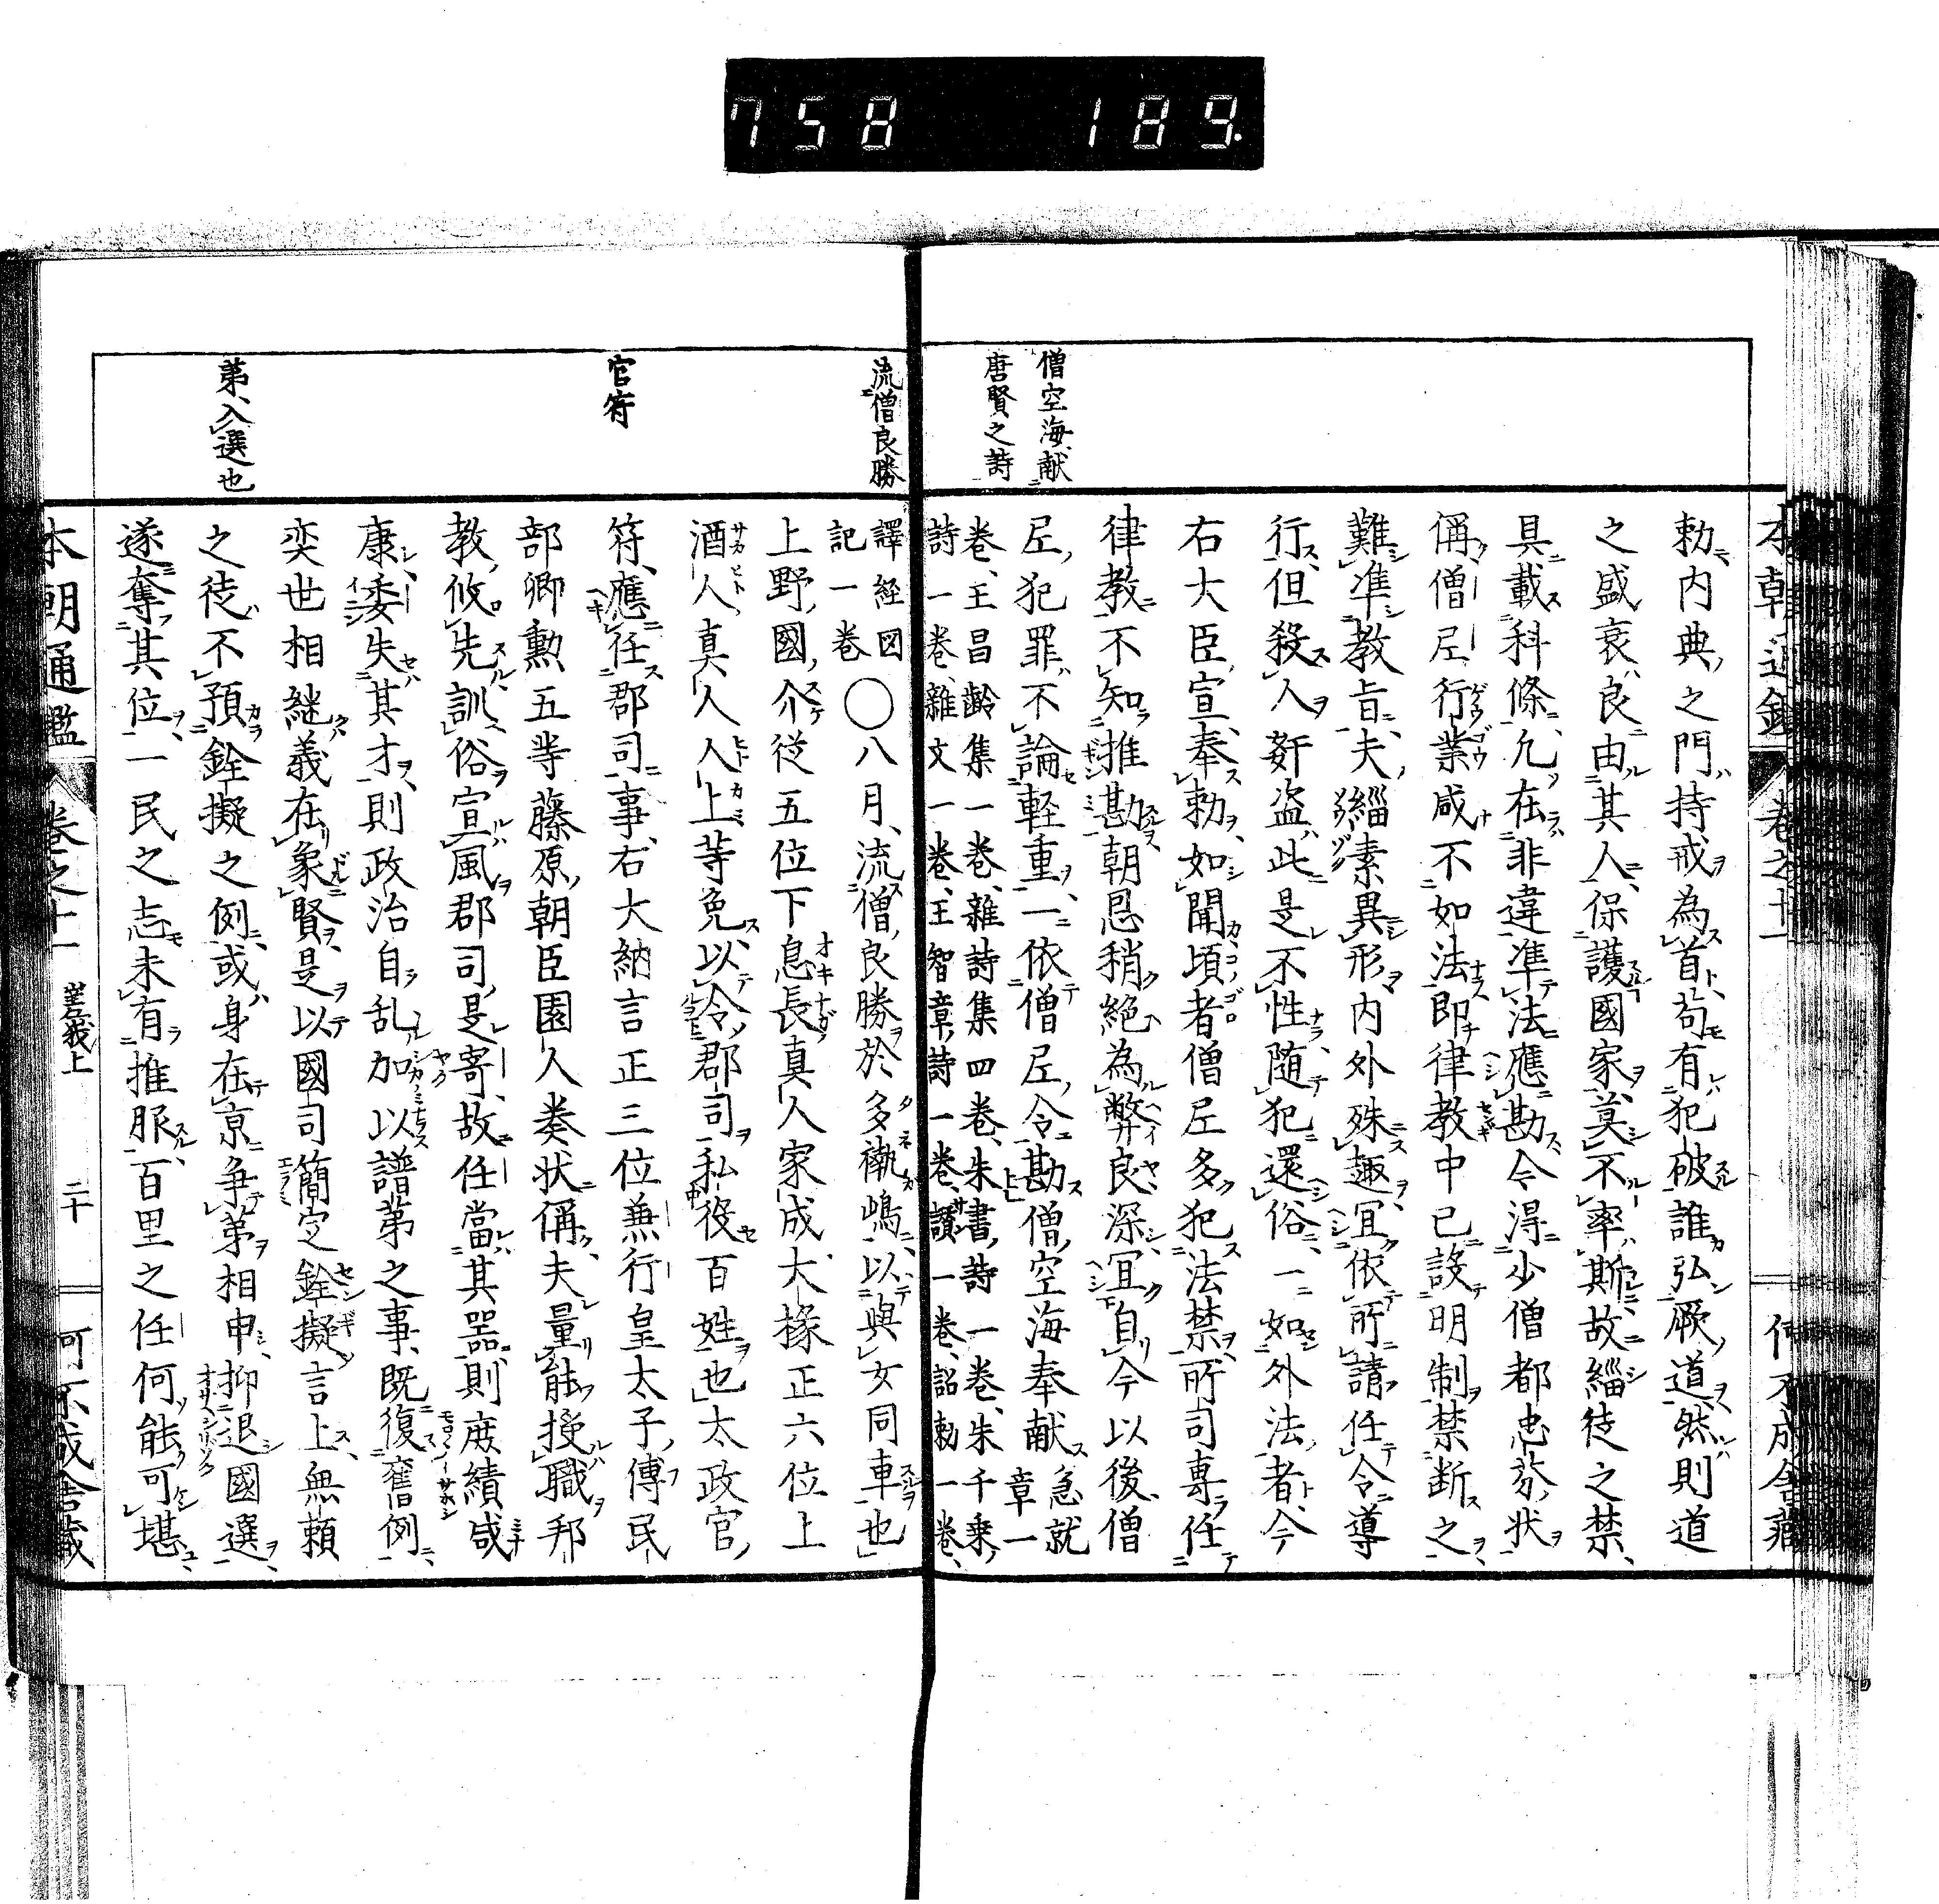 758 189.
本朝通鑑 卷之十一 何不成舎蔵
勅内典之門持戒為首苟有犯破誰弘厥道然則道
之盛衰良由其人保護國家莫不率斯故緇徒之禁
具載科條凢在非違準法應勘今得少僧都忠芬状
偁僧尼行業咸不如法即律教中已設明制禁断之
難準教旨夫緇素異形内外殊趣冝依所請任令導
行但殺人奸盗此是不性随犯還俗一如外法者今
右大臣宣奉勅如聞頃者僧尼多犯法禁所司専任
律教不知推勘朝㤙稍絶為弊良深冝自今以後僧
尼犯罪不論軽重一依僧尼令勘僧空海奉献急就
章一
卷王昌齢集一卷雜詩集四卷朱書詩一卷朱千乗
詩一卷雜文一卷王智章詩一卷讃一卷詔勅一卷
僧空海献
唐賢之詩
譯経図
記一卷
〇八月流僧良勝於多褹嶋以與女同車也
上野國介従五位下息長真人家成大掾正六位上
酒人真人人上等免以令郡司私役百姓也太政官
符應任郡司事右大納言正三位兼行皇太子傅民
部卿勲五等藤原朝臣園人奏状偁夫量能授職邦
教攸先訓俗宣風郡司是寄故任當其器則庶績咸
康委失其才則政治自乱加以譜第之事既復舊例
奕世相継義在象賢是以國司簡定銓擬言上無頼
之徒不預銓擬之例或身在京争第相申抑退國選
遂奪其位一民之志未有推服百里之任何能可堪
流僧良勝
官符
第入選也
本朝通鑑 卷之十一 嵯峩上 二十 何不成舎蔵